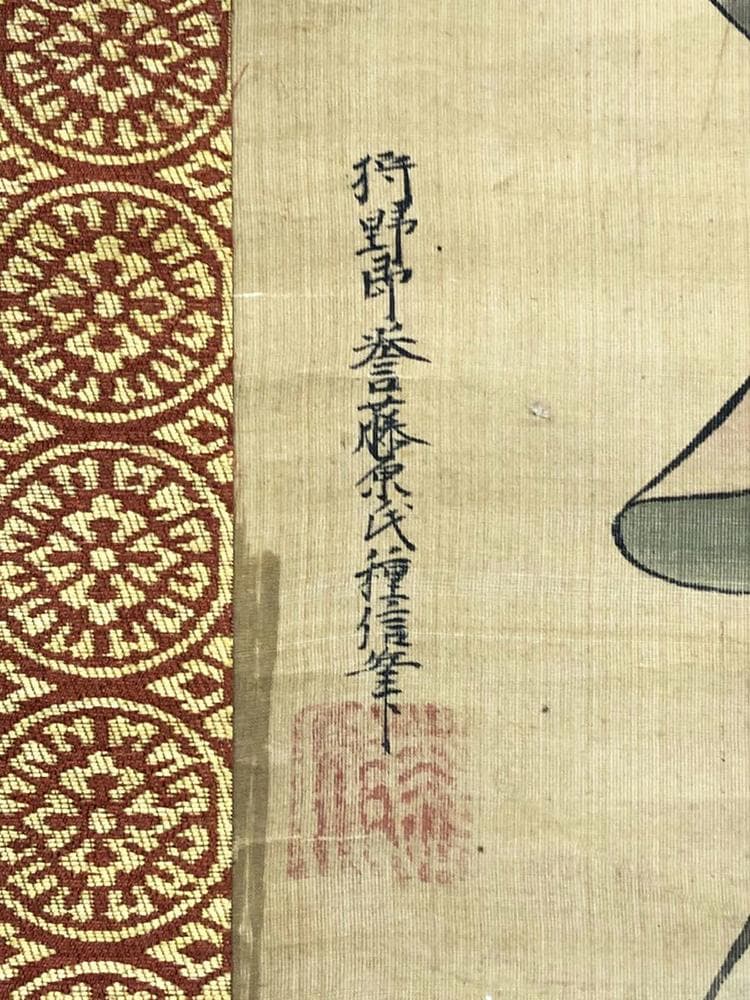 狩野即誉藤原氏種信筆